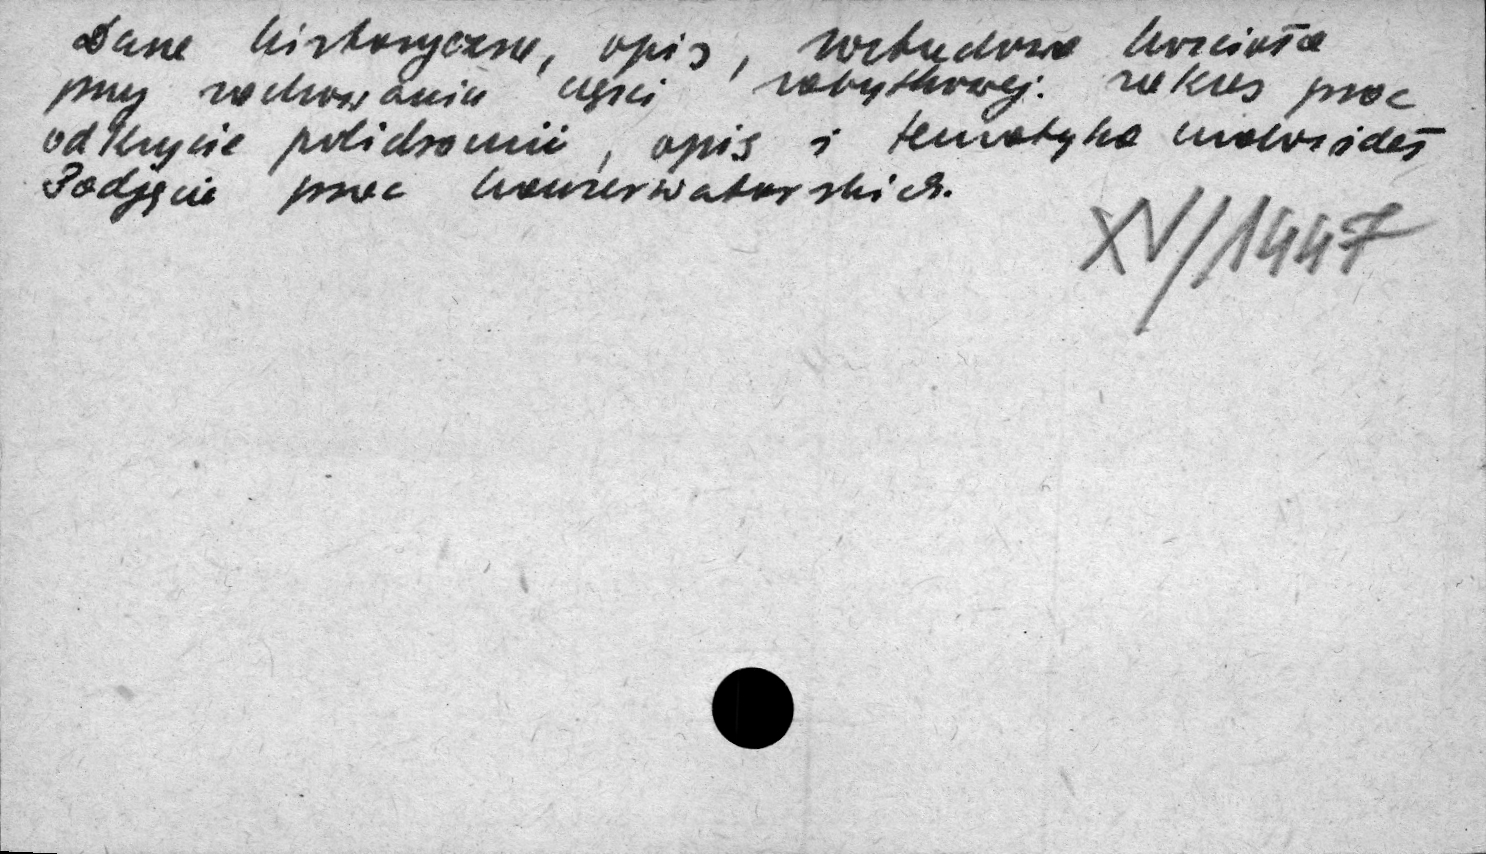 Dane historyczne, opis, rozbudowa kościoła
przy zachowaniu części zabytkowej. zakres prac
odkrycie polichromii, opis i tematyka malowideł
Podjęcie prac konserwatorskich.
XV/1447